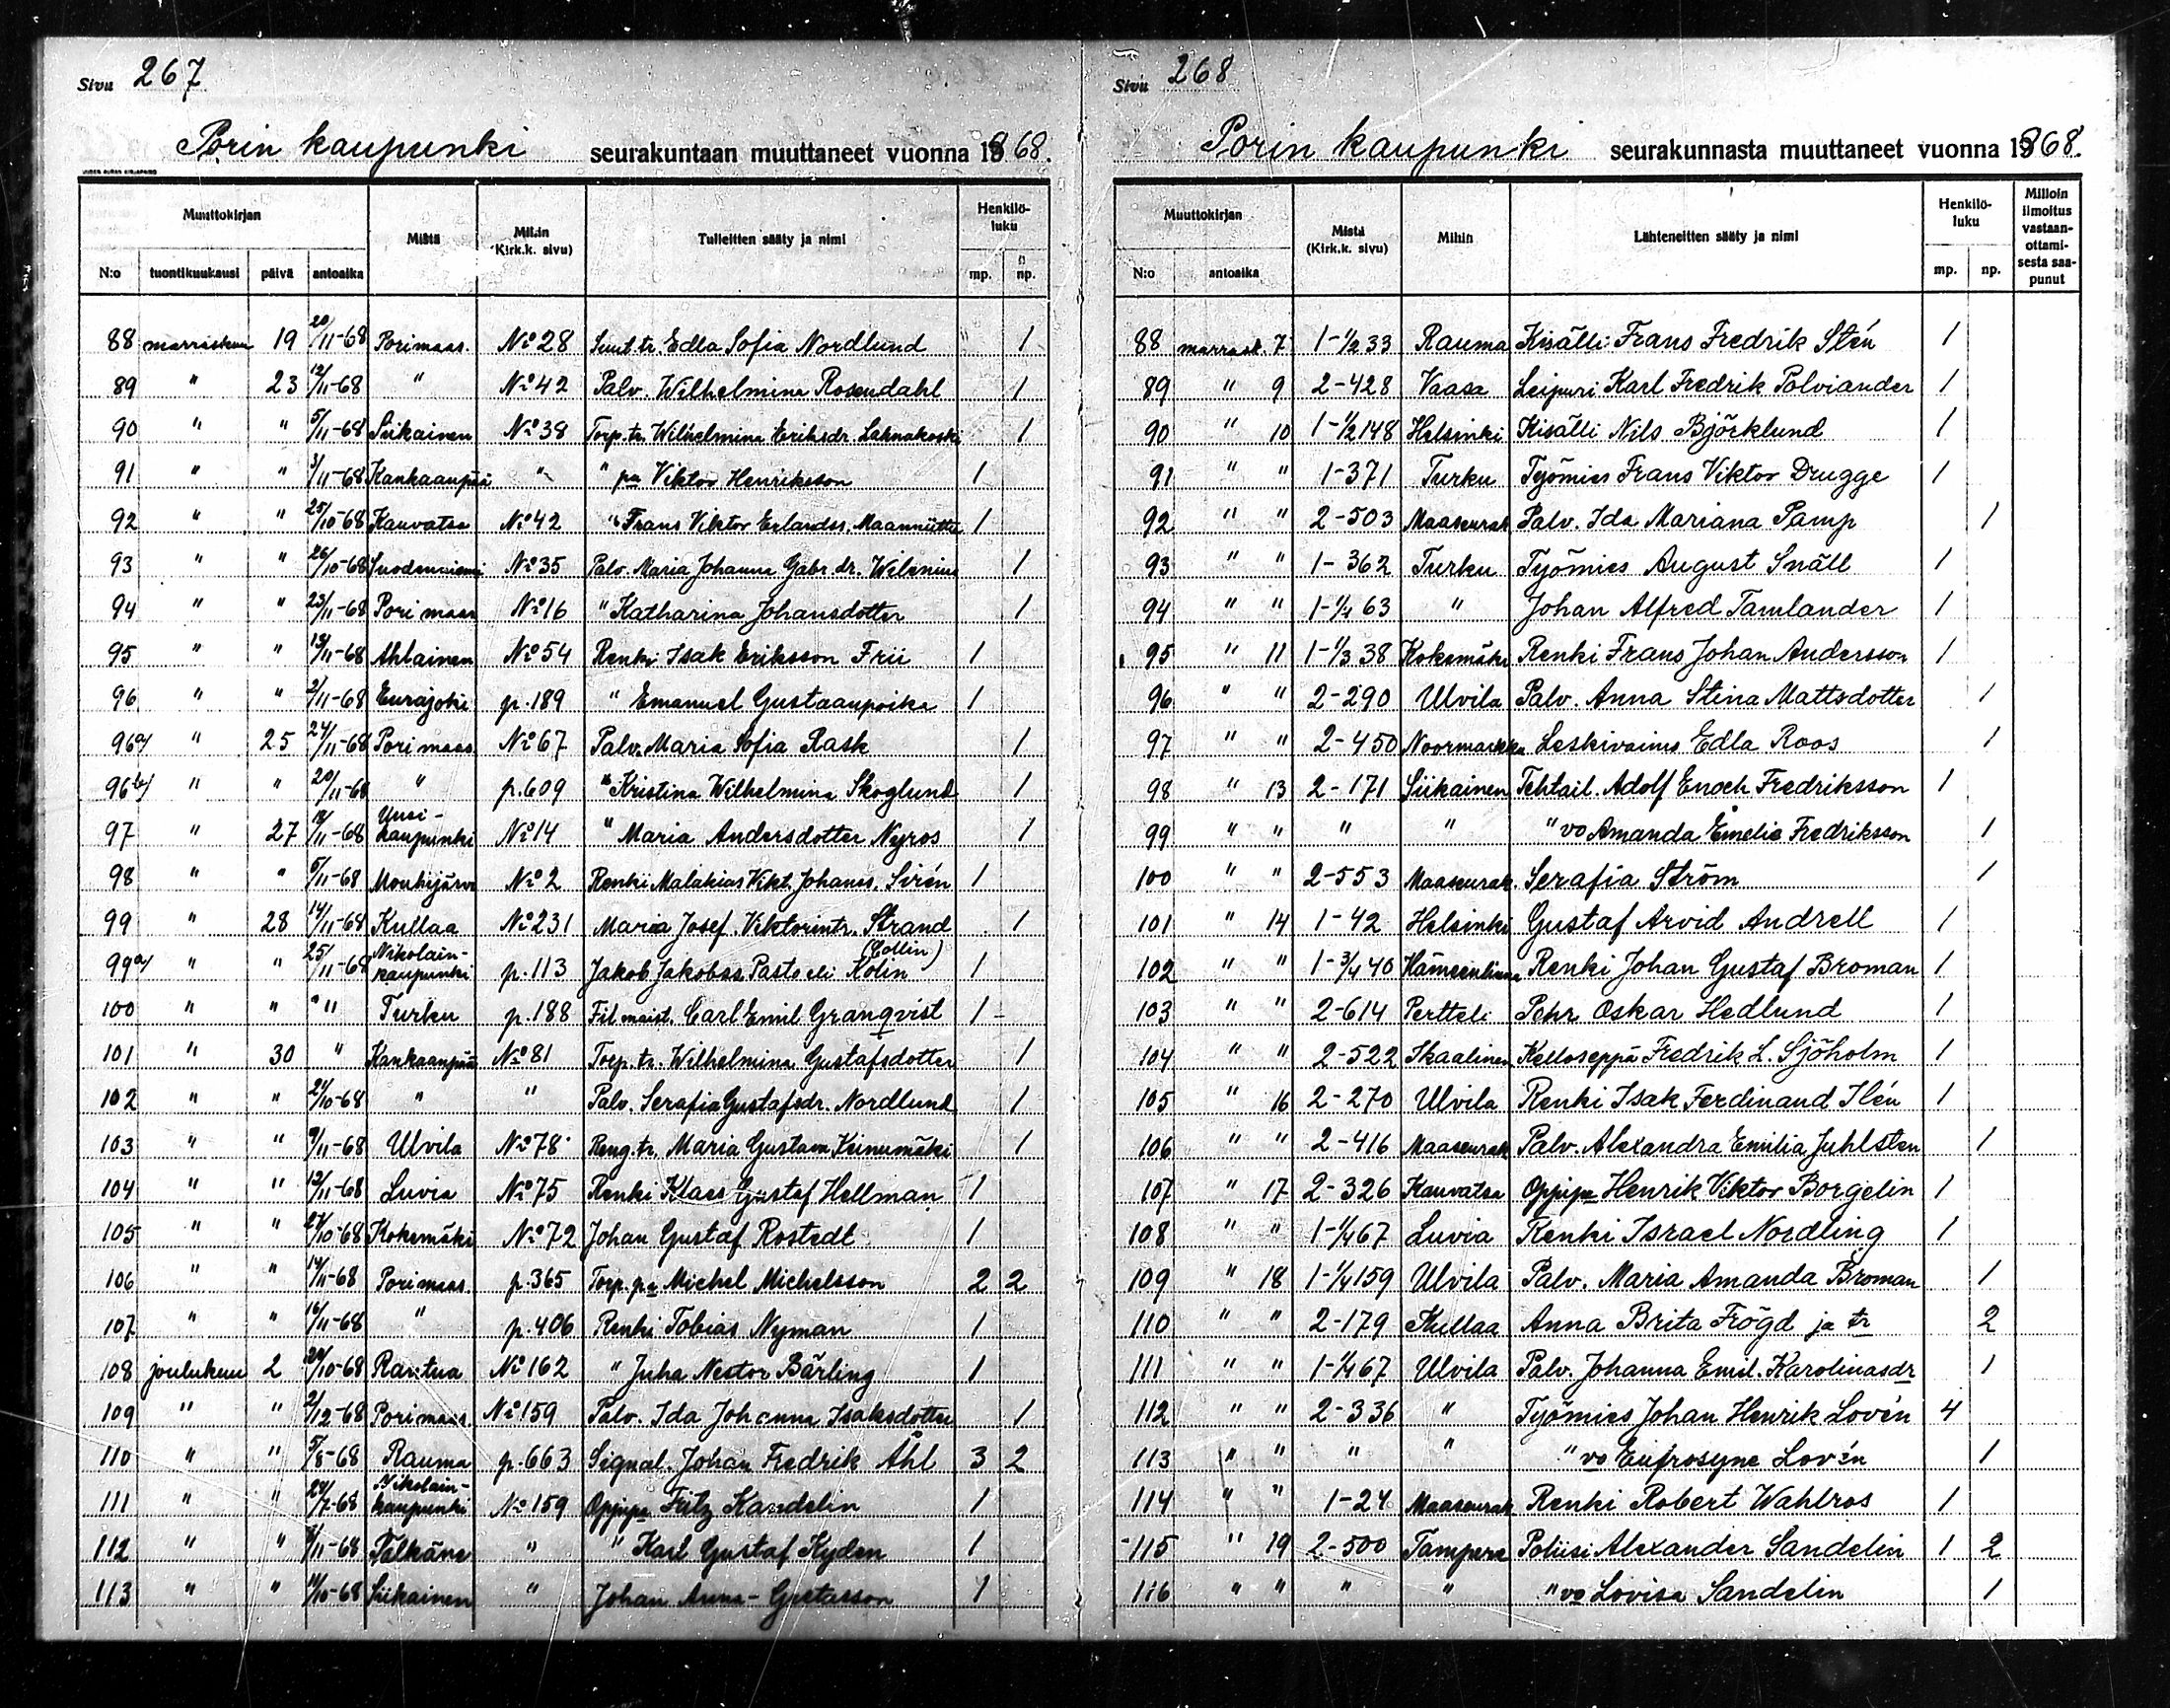 Sivu 267
Porin kaupunki seurakuntaan muuttaneet vuonna 1868.
Muuttokirjan Mistä Mihin (Kirk.k. sivu) Tulleitten sääty ja nimi Henkilö-luku
N:o tuontikuukausi päivä antoaika mp. np.
88 marraskuu 19 20/11-68 Porimaas. No 28 Suut.tr. Edla Sofia Nordlund 1
89 " 23 12/11-68 " No 42 Palv. Wilhelmina Rosendahl 1
90 " " 5/11-68 Siikainen No 38 Torp.tr. Wilhelmina Eriksdr. Lahnakoski 1
91 " " 3/11-68 Kankaanpää " " pa Viktor Henriksson 1
92 " " 25/10-68 Kauvatsa No 42 " Frans Viktor Erlandss. Maanniittu 1
93 " " 26/10-68 Suodenniemi No 35 Palv. Maria Johanna Gabr.dr. Wilenius 1
94 " " 23/11-68 Pori maas No 16 " Katharina Johansdotter 1
95 " " 13/11-68 Ahlainen No 54 Renki Isak Eriksson Frii 1
96 " " 2/11-68 Eurajoki p.189 " Emanuel Gustaanpoika 1
96a/ " 25 24/11-68 Pori maas No 67 Palv. Maria Sofia Rask 1
96b/ " " 20/11-68 " p.609 " Kristina Wilhelmina Skoglund 1
97 " 27 18/11-68 Uusi-kaupunki No 14 " Maria Andersdotter Nyros 1
98 " " 5/11-68 Mouhijärvi No 2 Renki Malakias Vikt. Johans. Sirén 1
99 " 28 14/11-68 Kullaa No 231 Maria Josef. Viktorintr. Strand 1
99a/ " " 25/11-68 Nikolain-kaupunki p.113 Jakob Jakobss. Pasto eli Kolin (Collin) 1
100 " " " " Turku p.188 Fil maist. Carl Emil Granqvist 1
101 " 30 " Kankaanpää No 81 Torp.tr. Wilhelmina Gustafsdotter 1
102 " " 24/10-68 " " Palv. Serafia Gustafsdr. Nordlund 1
103 " " 9/11-68 Ulvila No 78 Reng.tr. Maria Gustava Keinumäki 1
104 " " 12/11-68 Luvia No 75 Renki Klaes Gustaf Hellman 1
105 " " 27/10-68 Kokemäki No 72 Johan Gustaf Rostedt 1
106 " " 14/11-68 Porimaas. p.365 Torp.pa Michel Michelsson 2 2
107 " " 16/11-68 " p.406 Renki Tobias Nyman 1
108 joulukuu 2 29/10-68 Rautua No 162 " Juha Nestor Bärling 1
109 " " 2/12-68 Porimaas. No 159 Palv. Ida Johanna Isaksdotter 1
110 " " 5/8-68 Rauma p.663 Signal. Johan Fredrik Åhl 3 2
111 " " 29/7-68 Nikolain-kaupunki No 159 Oppipa Fritz Kandelin 1
112 " " /11-68 Pälkäne " " Karl Gustaf Kyden 1
113 " " /10-68 Siikainen " Johan Anna-Gustasson 1
Sivu 268
Porin kaupunki seurakunnasta muuttaneet vuonna 1868.
Muuttokirjan Mistä (Kirk.k. sivu) Mihin Lähteneitten sääty ja nimi Henkilö-luku Milloin ilmoitus vastaan-ottami-sesta saa-punut
N:o antoaika mp. np.
88 marrask. 7 1-1/2 33 Rauma Kisälli Frans Fredrik Stén 1
89 " 9 2-428 Vaasa Leipuri Karl Fredrik Polviander 1
90 " 10 1-1/2 148 Helsinki Kisälli Nils Björklund 1
91 " " 1-371 Turku Työmies Frans Viktor Drugge 1
92 " " 2-503 Maaseurak Palv. Ida Mariana Pamp 1
93 " " 1-362 Turku Työmies August Snäll 1
94 " " 1-1/4 63 " Johan Alfred Tamlander 1
95 " 11 1-1/3 38 Kokemäki Renki Frans Johan Andersson 1
96 " " 2-290 Ulvila Palv. Anna Stina Mattsdotter 1
97 " " 2-450 Noormarkku Leskivaimo Edla Roos 1
98 " 13 2-171 Siikainen Tehtail. Adolf Enoch Fredriksson 1
99 " " " " " vo Amanda Emelie Fredriksson 1
100 " " 2-553 Maaseurak. Serafia Ström 1
101 " 14 1-42 Helsinki Gustaf Arvid Andrell 1
102 " " 1-3/4 40 Hämeenlinna Renki Johan Gustaf Broman 1
103 " " 2-614 Pertteli Pehr Oskar Hedlund 1
104 " " 2-522 Ikaalinen Kelloseppä Fredrik L. Sjöholm 1
105 " 16 2-270 Ulvila Renki Isak Ferdinand Ilén 1
106 " " 2-416 Maaseurak Palv. Alexandra Emilia Juhlsten 1
107 " 17 2-326 Kauvatsa Oppipa Henrik Viktor Borgelin 1
108 " " 1-1/4 67 Luvia Renki Israel Nordling 1
109 " 18 1-1/4 159 Ulvila Palv. Maria Amanda Broman 1
110 " " 2-179 Kullaa Anna Brita Frögd ja tr 2
111 " " 1-1/4 67 Ulvila Palv. Johanna Emil. Karolinasdr 1
112 " " 2-336 " Työmies Johan Henrik Lovén 4
113 " " " " " vo Eufrosyne Lovén 1
114 " " 1-24 Maaseurak Renki Robert Wahlros 1
115 " 19 2-500 Tampere Poliisi Alexander Sandelin 1 2
116 " " " " " vo Lovisa Sandelin 1